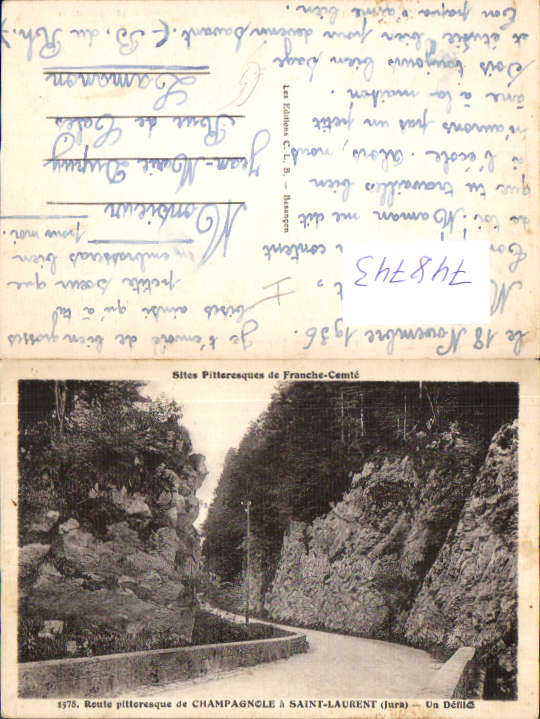 le 18 Novembre 1936.
M
Ton
content
de toi. Maman me dit
que tu travailles bien
à l'école. Alors, nous
n'aurons pas un petit
âne à la maison.
Sois toujours bien sage
et étudie bien pour devenir savant.
Ton papa t'aime bien.
Je t'envoie de bien grosses
bises ainsi qu'à ta
petite sœur que
tu embrasseras bien
pour moi.
Les Editions C. L. B. — Besançon
Monsieur
Jean-Marie Dupuy
Rue de Cales
Lamanon
(B. du Rh.)
748743
Sites Pittoresques de Franche-Comté
1578. Route pittoresque de CHAMPAGNOLE à SAINT-LAURENT (Jura) — Un Défilé